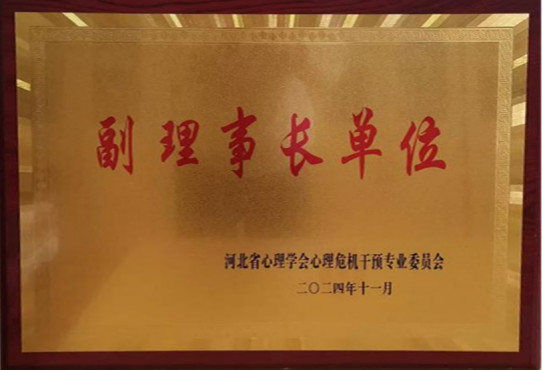 副理事长单位
河北省心理学会心理危机干预专业委员会
二〇二四年十一月